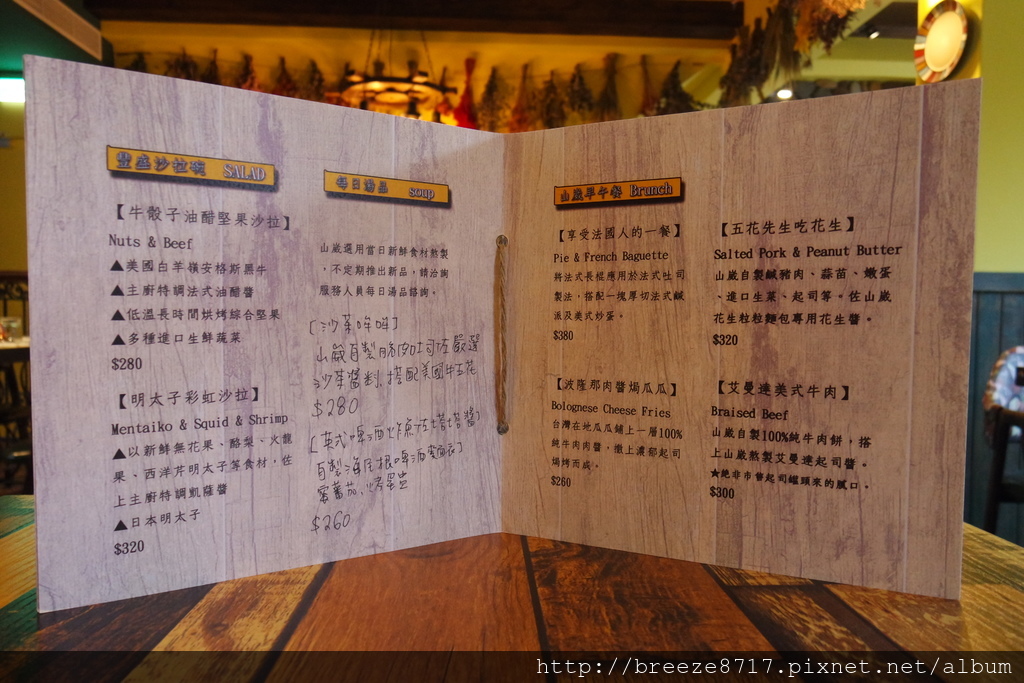 豐盛沙拉碗 SALAD
【牛骰子油醋堅果沙拉】
Nuts & Beef
▲美國白羊嶺安格斯黑牛
▲主廚特調法式油醋醬
▲低溫長時間烘烤綜合堅果
▲多種進口生鮮蔬菜
$280
【明太子彩虹沙拉】
Mentaiko & Squid & Shrimp
▲以新鮮無花果、酪梨、火龍
果、西洋芹明太子等食材，佐
上主廚特調凱薩醬
▲日本明太子
$320
每日湯品 soup
山崴選用當日新鮮食材熬製
，不定期推出新品，請洽詢
服務人員每日湯品諮詢。
[沙茶哞哞]
山崴自製豬肉吐司佐嚴選
沙茶醬料,搭配美國牛五花
$280
[英式啤酒炸魚佐塔塔醬]
自製海尼根啤酒麵衣]
蜜蕃茄、烤蛋盅
$260
山崴早午餐 Brunch
【享受法國人的一餐】
Pie & French Baguette
將法式長棍應用於法式吐司
製法，搭配一塊厚切法式鹹
派及美式炒蛋。
$380
【波隆那肉醬焗瓜瓜】
Bolognese Cheese Fries
台灣在地瓜瓜鋪上一層100%
純牛肉肉醬，撒上濃郁起司
焗烤而成。
$260
【五花先生吃花生】
Salted Pork & Peanut Butter
山崴自製鹹豬肉、蒜苗、嫩蛋
、進口生菜、起司等。佐山崴
花生粒粒麵包專用花生醬。
$320
【艾曼達美式牛肉】
Braised Beef
山崴自製100%純牛肉餅，搭
上山崴熬製艾曼達起司醬。
★絕非市售起司罐頭來的膩口。
$300
http://breeze8717.pixnet.net/album